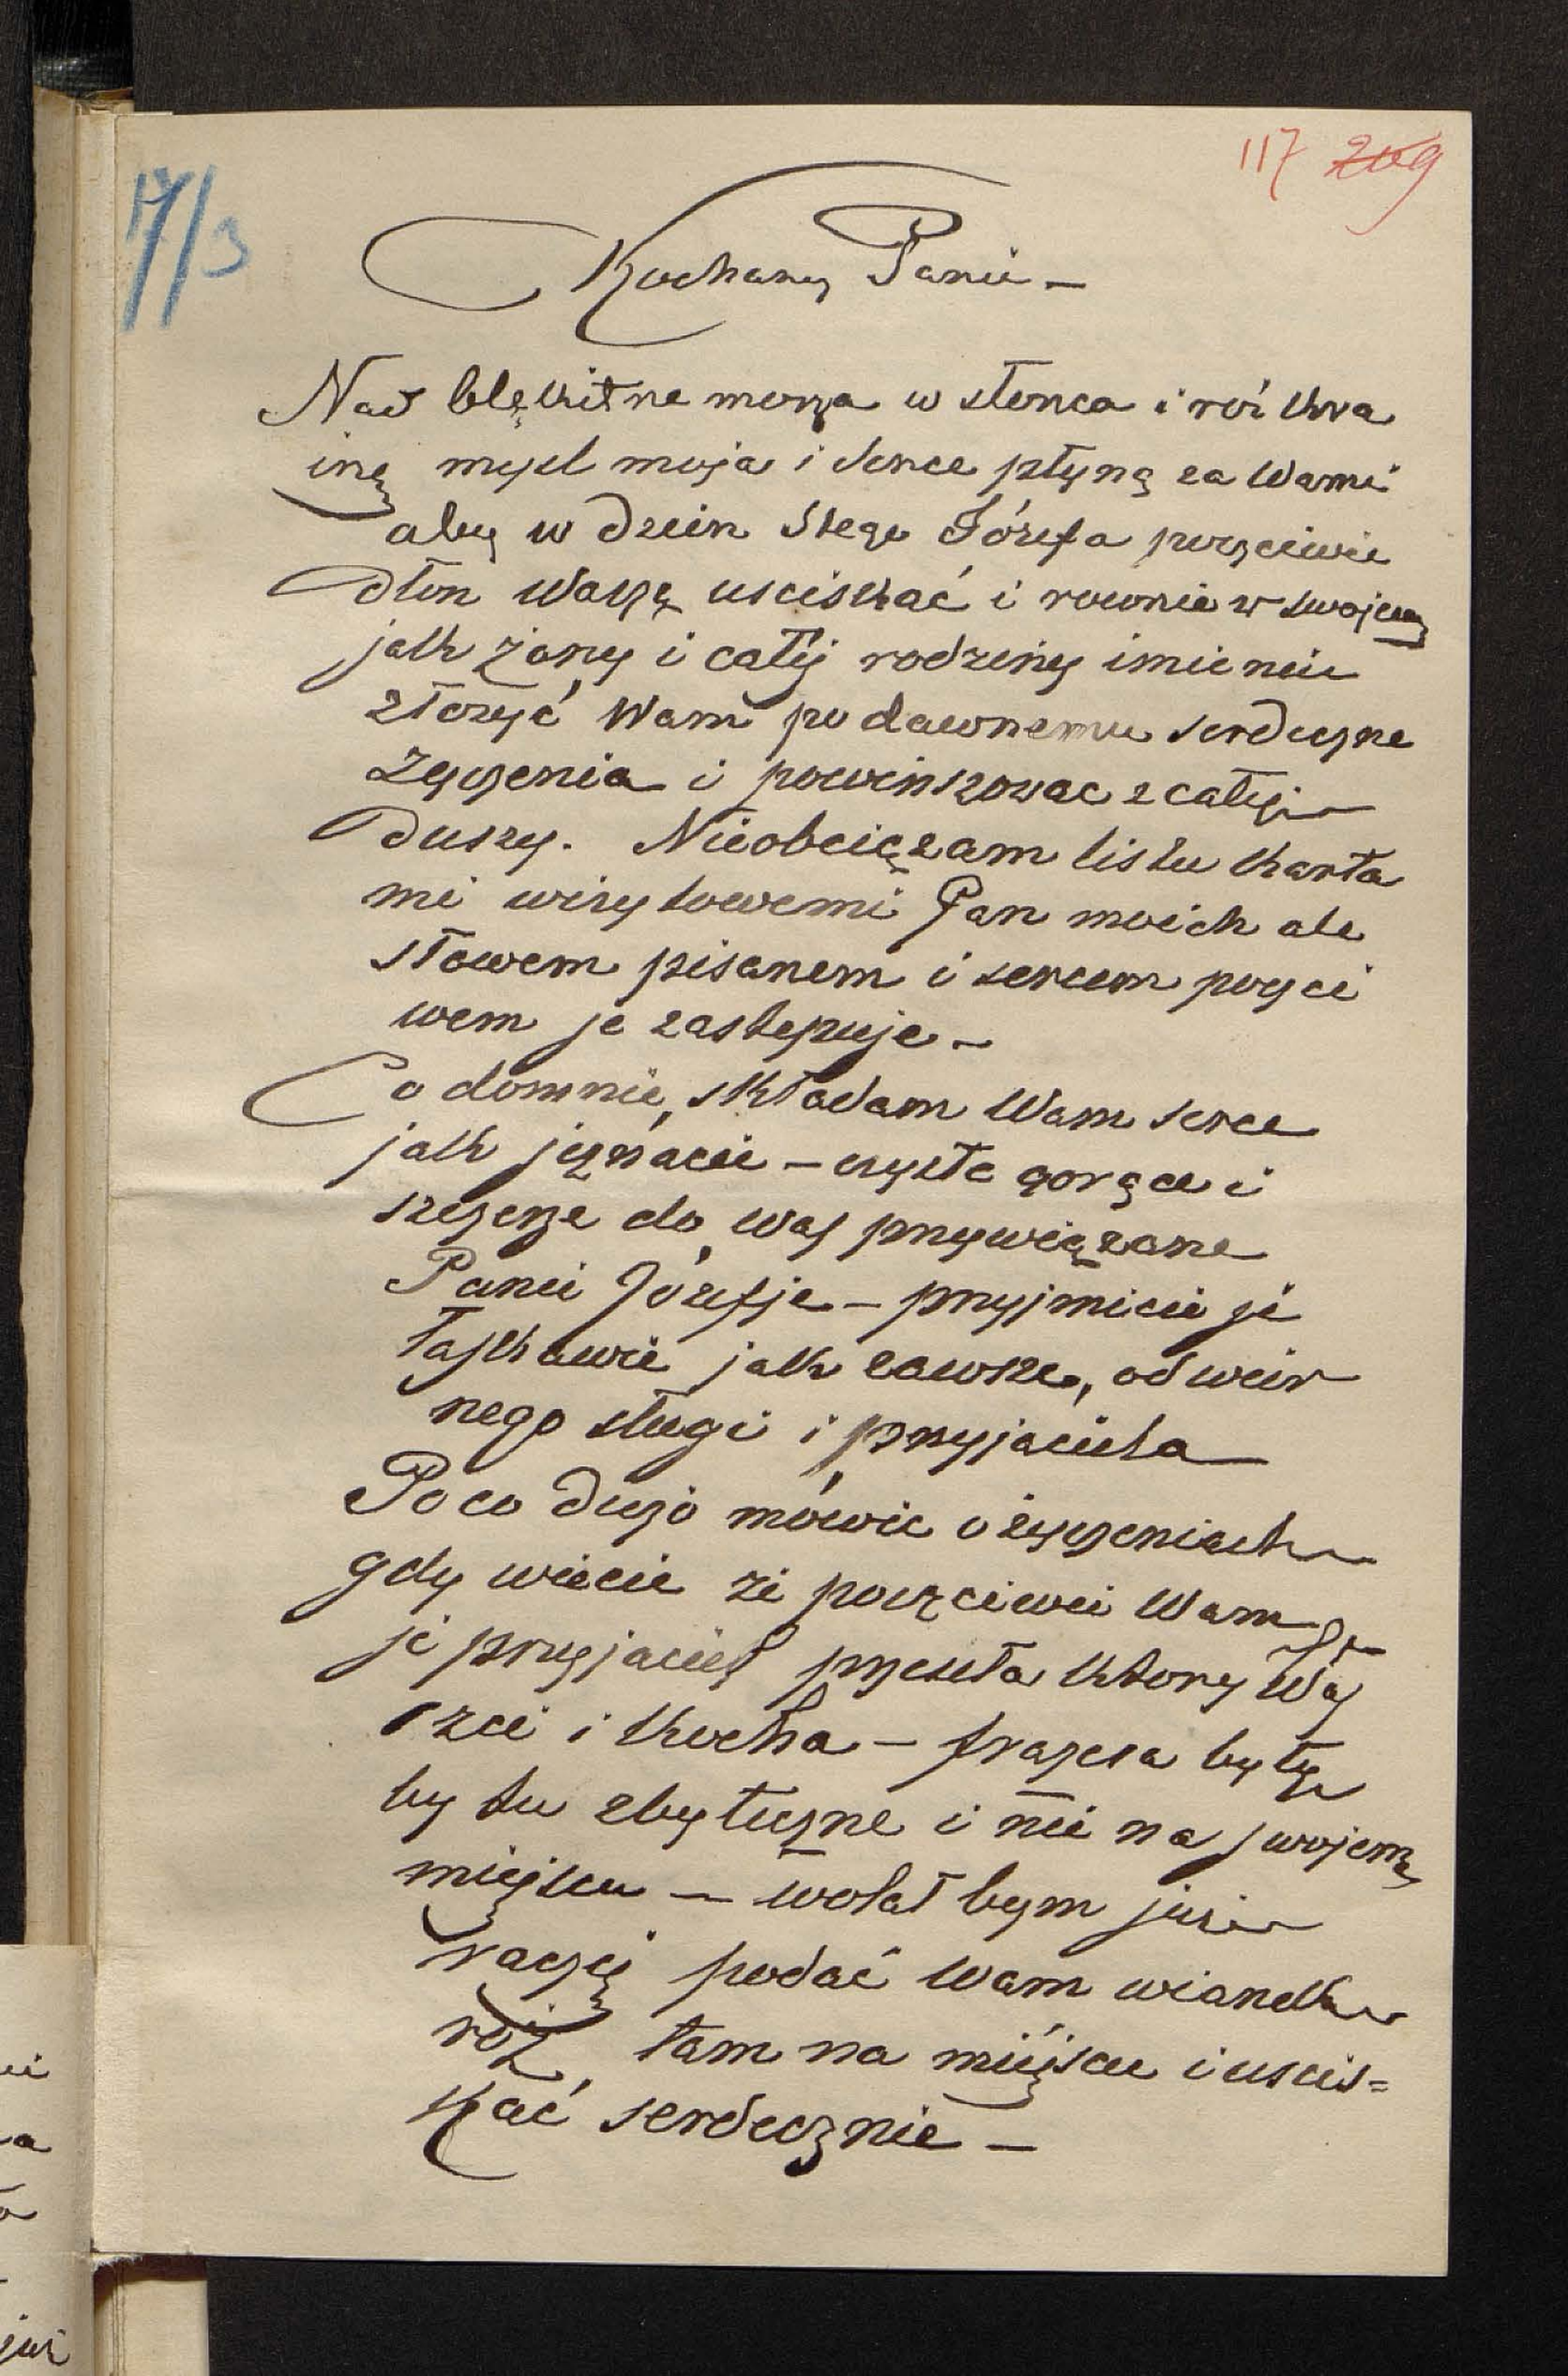 117 209
17/3
Kochany Panie –
Nad błękitne morza w słonca i róż kra
inę mysl moja i serce płyną za Wami
aby w dzien Stego Józefa poczciwie
dłon Waszę usciskać i rownie w swojem
jak żony i całej rodziny imieniu
złożyć Wam po dawnemu serdeczne
życzenia i powinszowac z całej
duszy. Nieobciązam listu karta
mi wizytowemi Pan moich ale
słowem pisanem i sercem poczci
wem je zastepuje –
Co do mnie, składam Wam serce
jak je znacie – czyste gorące i
szczerze do Was przywiązane
Panie Józefie – przyjmicie je
łaskawie jak zawsze, od wier
nego sługi i przyjaciela
Po co dużo mówic o życzeniach
gdy wiecie ze poczciwei Wam
je przyjaciel przeseła ktory Was
czci i kocha – frazesa były
by tu zbyteczne i nie na swojem
miejscu – wolał bym juz
raczej podać Wam wianek
róż tam na miéjscu i uscis=
kać serdecznie –
ei
a
a
juz